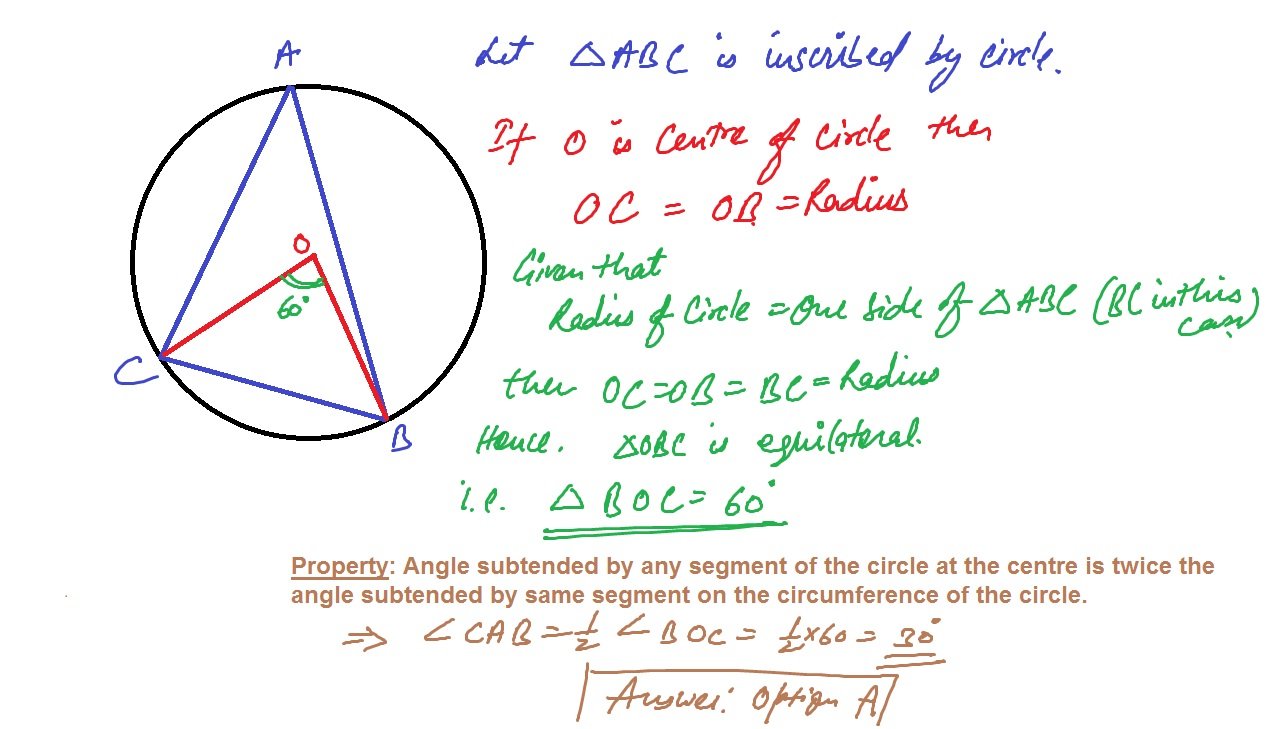 A
Let △ABC is inscribed by circle.
If O is Centre of Circle then
OC = OB = Radius
O
60°
Given that
Radius of Circle = One Side of △ABC (BC in this case)
C
then OC=OB = BC = Radius
B
Hence. △OBC is equilateral.
i.e. △ BOC = 60°
Property: Angle subtended by any segment of the circle at the centre is twice the
angle subtended by same segment on the circumference of the circle.
⇒ ∠CAB = 1/2 ∠BOC = 1/2 × 60 = 30°
Answer: Option A